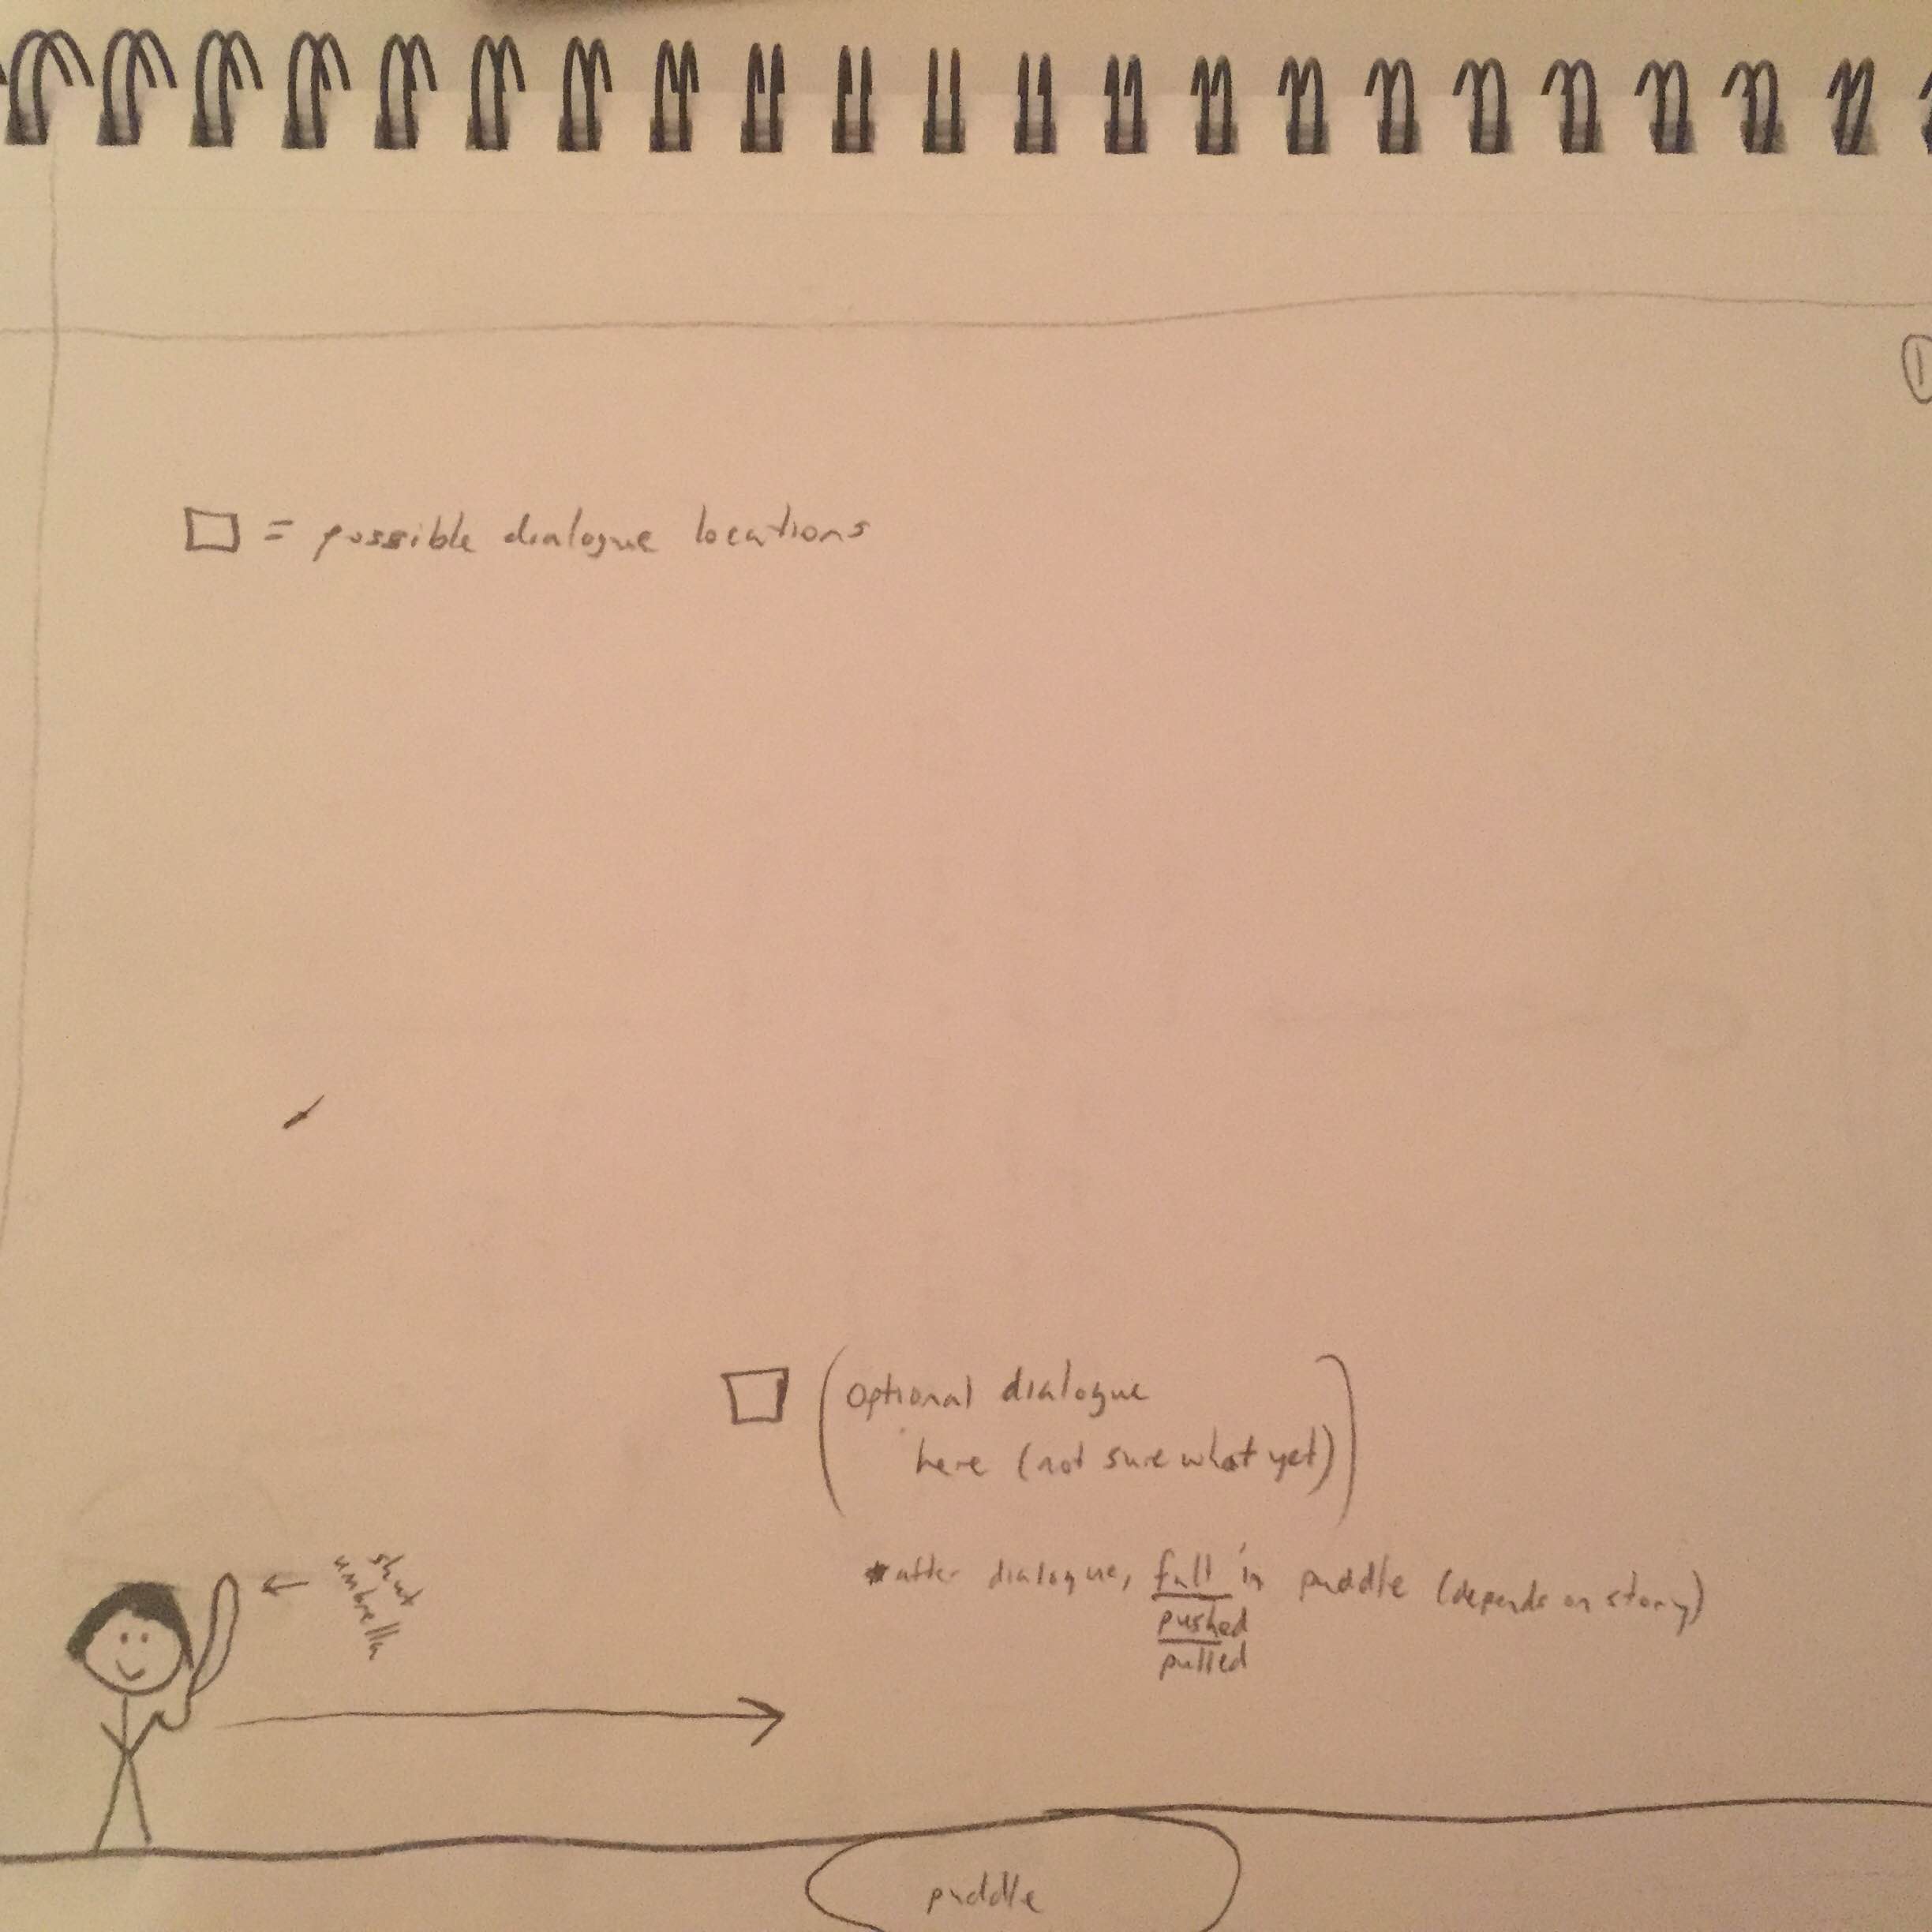 1
= possible dialogue locations
(optional dialogue
here (not sure what yet))
shut
umbrella
*after dialogue, fall in puddle (depends on story)
pushed
pulled
puddle